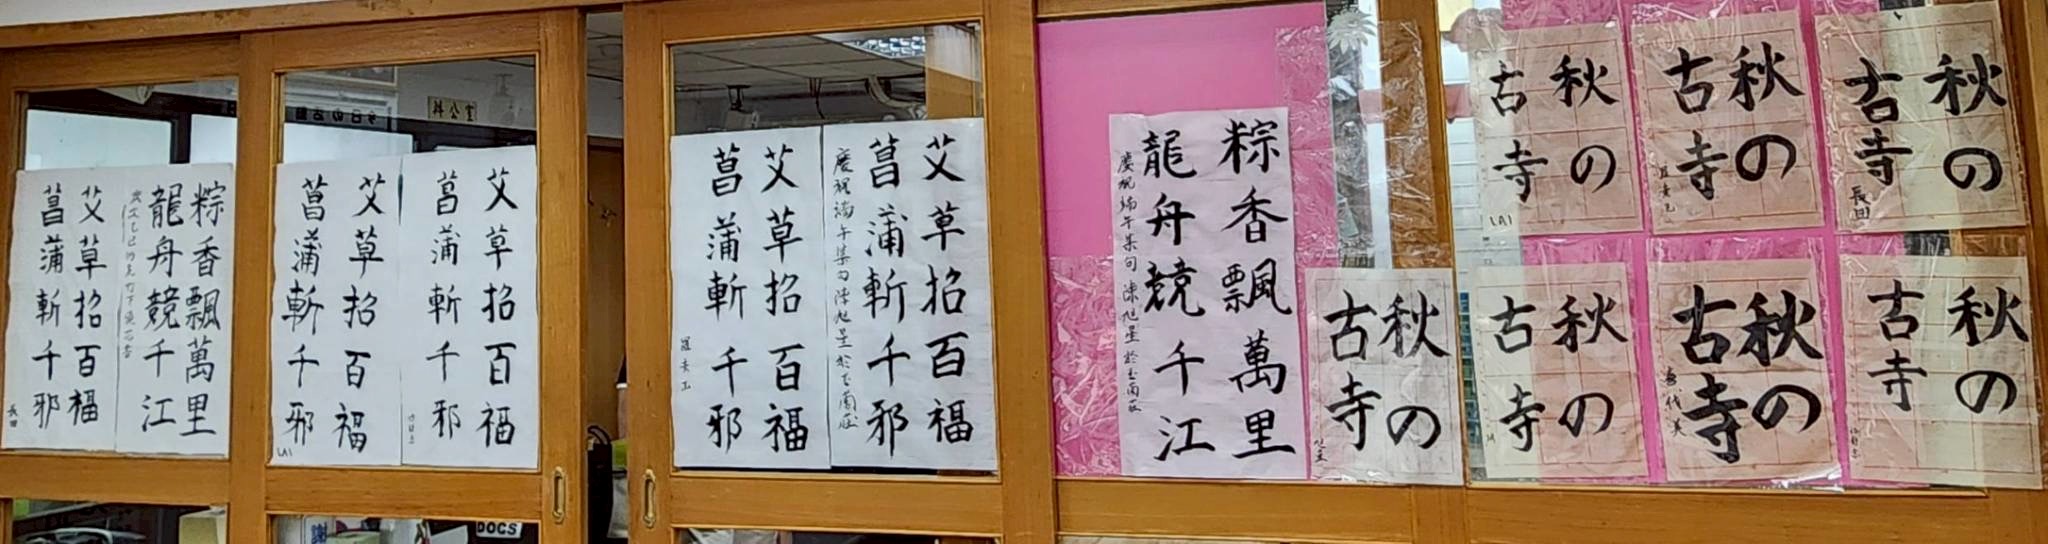 粽香飄萬里
龍舟競千江
艾草招百福
菖蒲斬千邪
長田
艾草招百福
菖蒲斬千邪
LAI
艾草招百福
菖蒲斬千邪
艾草招百福
菖蒲斬千邪
艾草招百福
菖蒲斬千邪
慶祝端午集句陳旭星於
粽香飄萬里
龍舟競千江
慶祝端午集句陳旭星於
秋の
古寺
秋の
古寺
LAI
秋の
古寺
秋の
古寺
長田
秋の
古寺
秋の
古寺
秋の
古寺
DOCS
謝